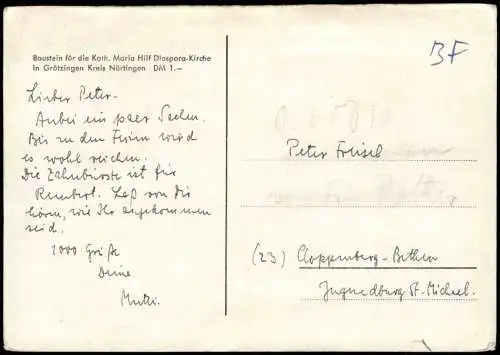 Baustein für die Kath. Maria Hilf Diaspora-Kirche
in Grötzingen Kreis Nürtingen DM 1.–
BF
Lieber Peter-
Anbei ein paar Sachen.
Bis zu den Ferien wird
es wohl reichen.
Die Zahnbürste ist für
Rembert. Laß von Dir
hören, wie Ihr angekommen
seid.
1000 Grüße
Deine
Mutti.
Peter
(23) Cloppenburg-Bethen
Jugendburg St. Michael.